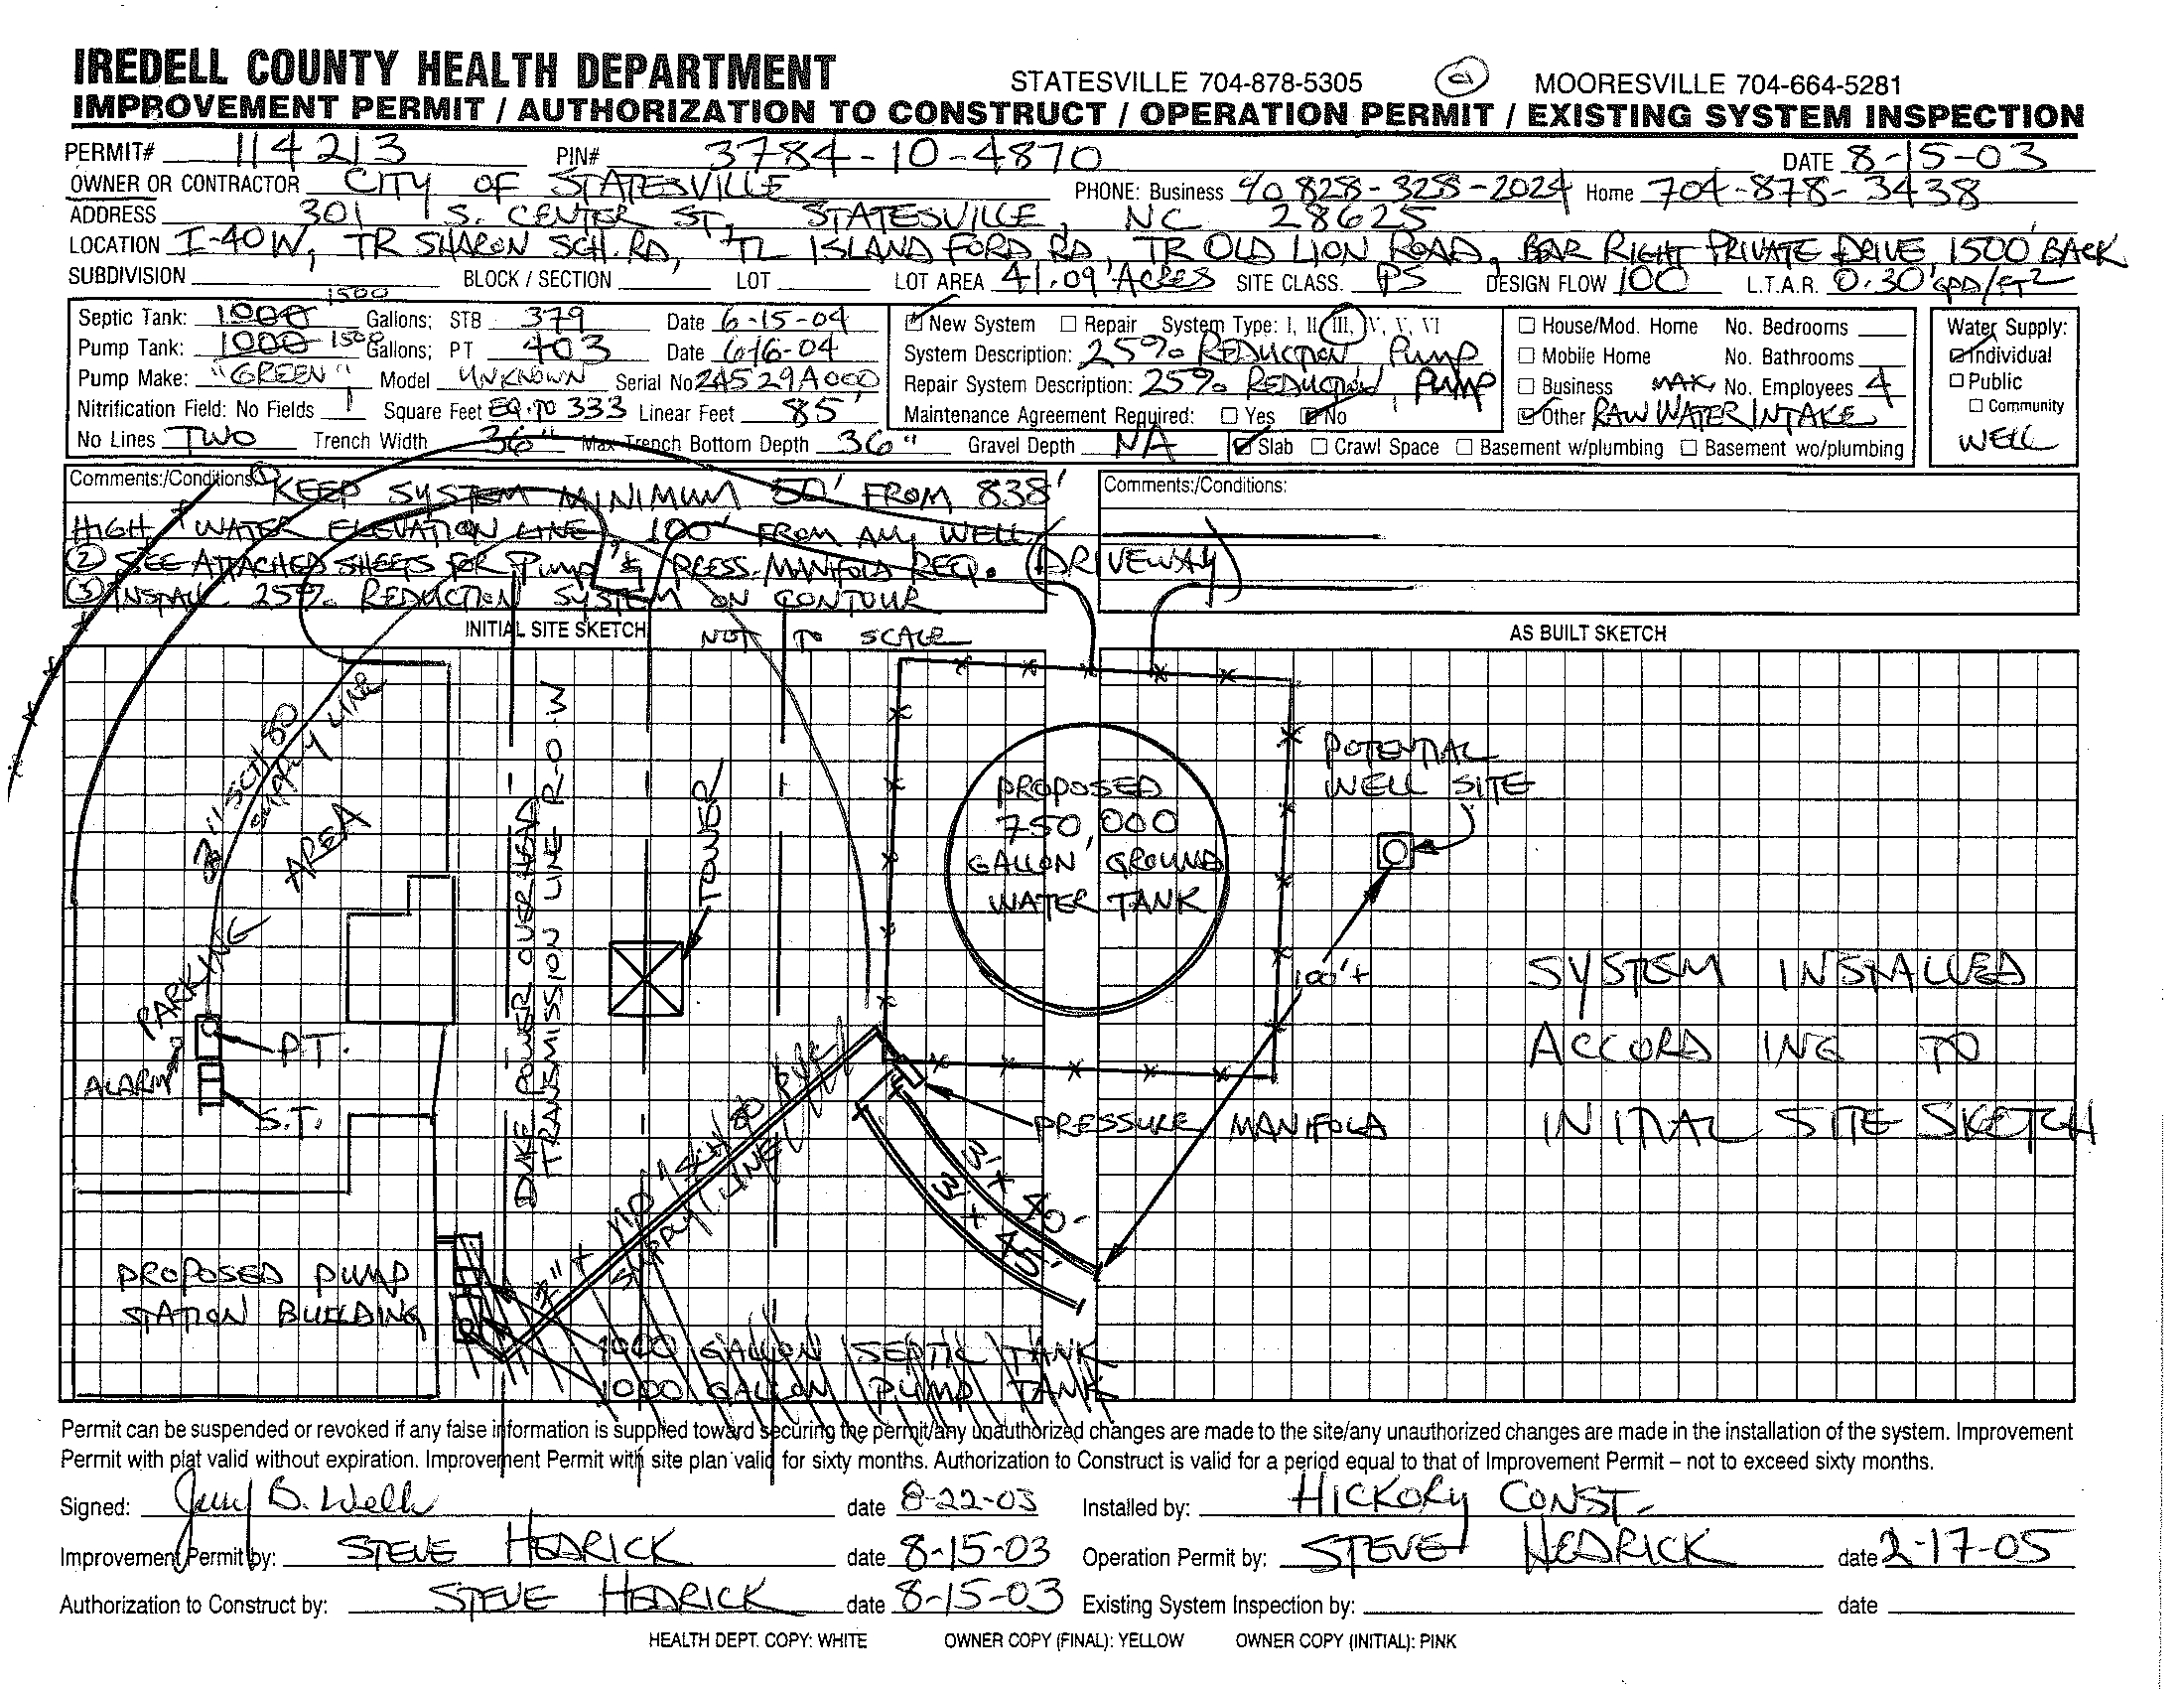 IREDELL COUNTY HEALTH DEPARTMENT STATESVILLE 704-878-5305 MOORESVILLE 704-664-5281
IMPROVEMENT PERMIT / AUTHORIZATION TO CONSTRUCT / OPERATION PERMIT / EXISTING SYSTEM INSPECTION
PERMIT# 114213 PIN# 3784-10-4870 DATE 8-15-03
OWNER OR CONTRACTOR CITY OF STATESVILLE PHONE: Business % 828-328-2024 Home 704-878-3438
ADDRESS 301 S. CENTER ST, STATESVILLE, NC 28625
LOCATION I-40W, TR SHARON SCH. RD, TL ISLAND FORD RD, TR OLD LION ROAD, BEAR RIGHT PRIVATE DRIVE, 1500' BACK
SUBDIVISION BLOCK / SECTION LOT LOT AREA 41.09 ACRES SITE CLASS. PS DESIGN FLOW 100 L.T.A.R. 0.30 GPD/FT2
Septic Tank: 1000 1500 Gallons; STB 379 Date 6-15-04
Pump Tank: 1000 1500 Gallons; PT 403 Date 6-16-04
Pump Make: "GREEN" Model UNKNOWN Serial No 2A529A000
Nitrification Field: No Fields 1 Square Feet EQ. TO 333 Linear Feet 85'
No Lines TWO Trench Width 36" Max Trench Bottom Depth 36" Gravel Depth NA
New System Repair System Type: I, II, III, IV, V, VI
System Description: 25% REDUCTION, PUMP
Repair System Description: 25% REDUCTION, PUMP
Maintenance Agreement Required: Yes No
Slab Crawl Space Basement w/plumbing Basement wo/plumbing
House/Mod. Home No. Bedrooms
Mobile Home No. Bathrooms
Business MAX. No. Employees 4
Other RAW WATER INTAKE
Water Supply:
Individual
Public
Community
WELL
Comments:/Conditions: ① KEEP SYSTEM MINIMUM 50' FROM 838'
HIGH WATER ELEVATION LINE, 100' FROM ANY WELL
② SEE ATTACHED SHEETS FOR PUMP & PRESS. MANIFOLD REQ.
③ INSTALL 25% REDUCTION SYSTEM ON CONTOUR
Comments:/Conditions:
(DRIVEWAY)
INITIAL SITE SKETCH NOT TO SCALE
AS BUILT SKETCH
2" SCH 80
SUPPLY LINE
PARKING AREA
DUKE POWER OVERHEAD
TRANSMISSION LINE R-O-W
TOWER
PROPOSED
750,000
GALLON GROUND
WATER TANK
POTENTIAL
WELL SITE
100'+
P.T.
ALARM
S.T.
PRESSURE MANIFOLD
3' x 40'
3' x 45'
SUPPLY LINE
PROPOSED PUMP
STATION BUILDING
1000 GALLON SEPTIC TANK
1000 GALLON PUMP TANK
SYSTEM INSTALLED
ACCORDING TO
INITIAL SITE SKETCH
Permit can be suspended or revoked if any false information is supplied toward securing the permit/any unauthorized changes are made to the site/any unauthorized changes are made in the installation of the system. Improvement
Permit with plat valid without expiration. Improvement Permit with site plan valid for sixty months. Authorization to Construct is valid for a period equal to that of Improvement Permit – not to exceed sixty months.
Signed: Jerry B. Wells date 8-22-03 Installed by: HICKORY CONST.
Improvement Permit by: STEVE HEDRICK date 8-15-03 Operation Permit by: STEVE HEDRICK date 2-17-05
Authorization to Construct by: STEVE HEDRICK date 8-15-03 Existing System Inspection by: date
HEALTH DEPT. COPY: WHITE OWNER COPY (FINAL): YELLOW OWNER COPY (INITIAL): PINK